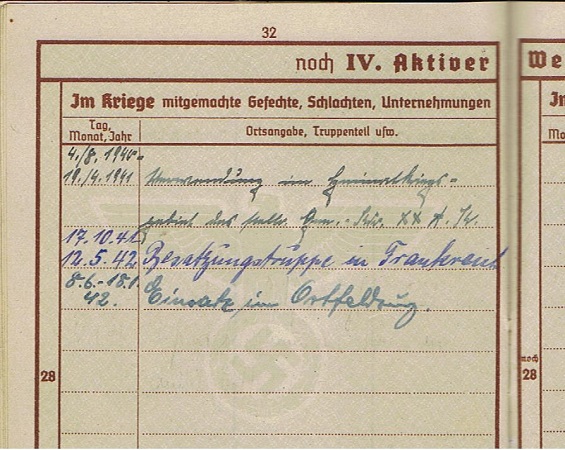 32
noch IV. Aktiver
We
Im Kriege mitgemachte Gefechte, Schlachten, Unternehmungen
Im
Tag,
Monat, Jahr
Ortsangabe, Truppenteil usw.
Mo
4./8. 1940-
19./4. 1941 Verwendung im Heimatkriegs-
gebiet des stellv. Gen.-Kdo. XX A.K.
17.10.41
12.5.42 Besatzungstruppe in Frankreich
8.6.-18.
42. Einsatz im Ostfeldzug.
28
noch
28